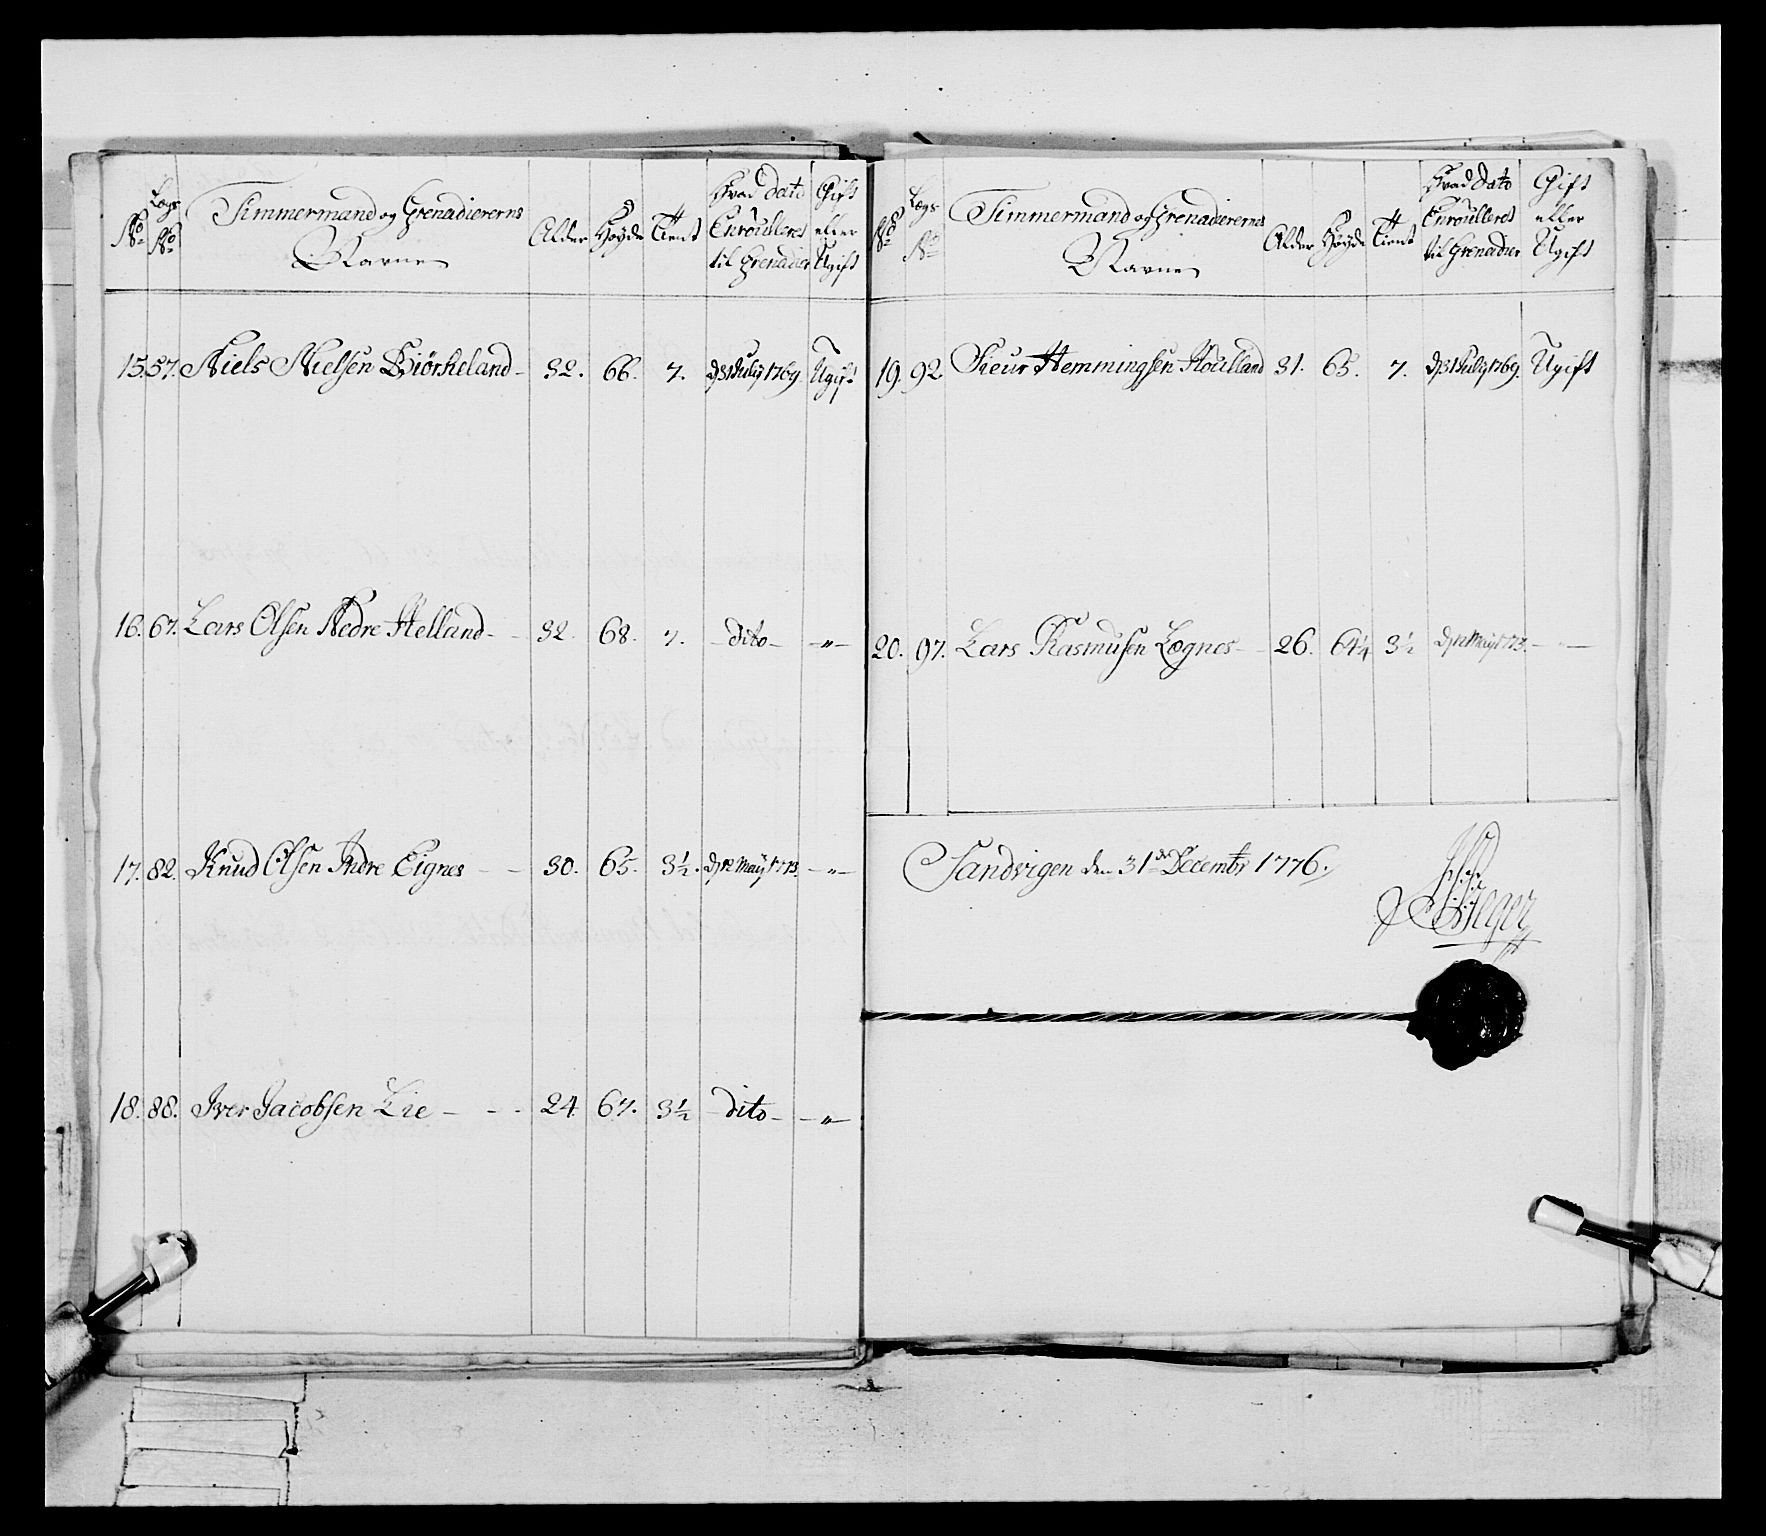 No Lægs No Timmermand og Grenadierernes Navne Alder Høyde Tient Hvad Dato Enroulleret til Grenadier Gift eller Ugift
15. 57. Niels Nielsen Biörkeland - 32. 66. 7. d 31 July 1769 Ugift
16. 67. Lars Olsen Nedre Helland - - 32. 68. 7. - dito - - " -
17. 82. Knud Olsen Indre Eignes - - 30. 65. 3½. d 12 Maÿ 1773. - " -
18. 88. Iver Jacobsen Lie - - - 24 67. 3½ - dito - - " -
No Lægs No Timmermand og Grenadierernes Navne Alder Høyde Tient Hvad Dato Enroulleret til Grenadier Gift eller Ugift
19. 92 Sieur Hemmingsen Houlland 31. 65. 7. d 31 July 1769. Ugift
20. 97. Lars Rasmusen Løgnes - - 26. 64¼ 3½ d 12 Maÿ 1773. - " -
Sandvigen den 31de Decembr 1776.